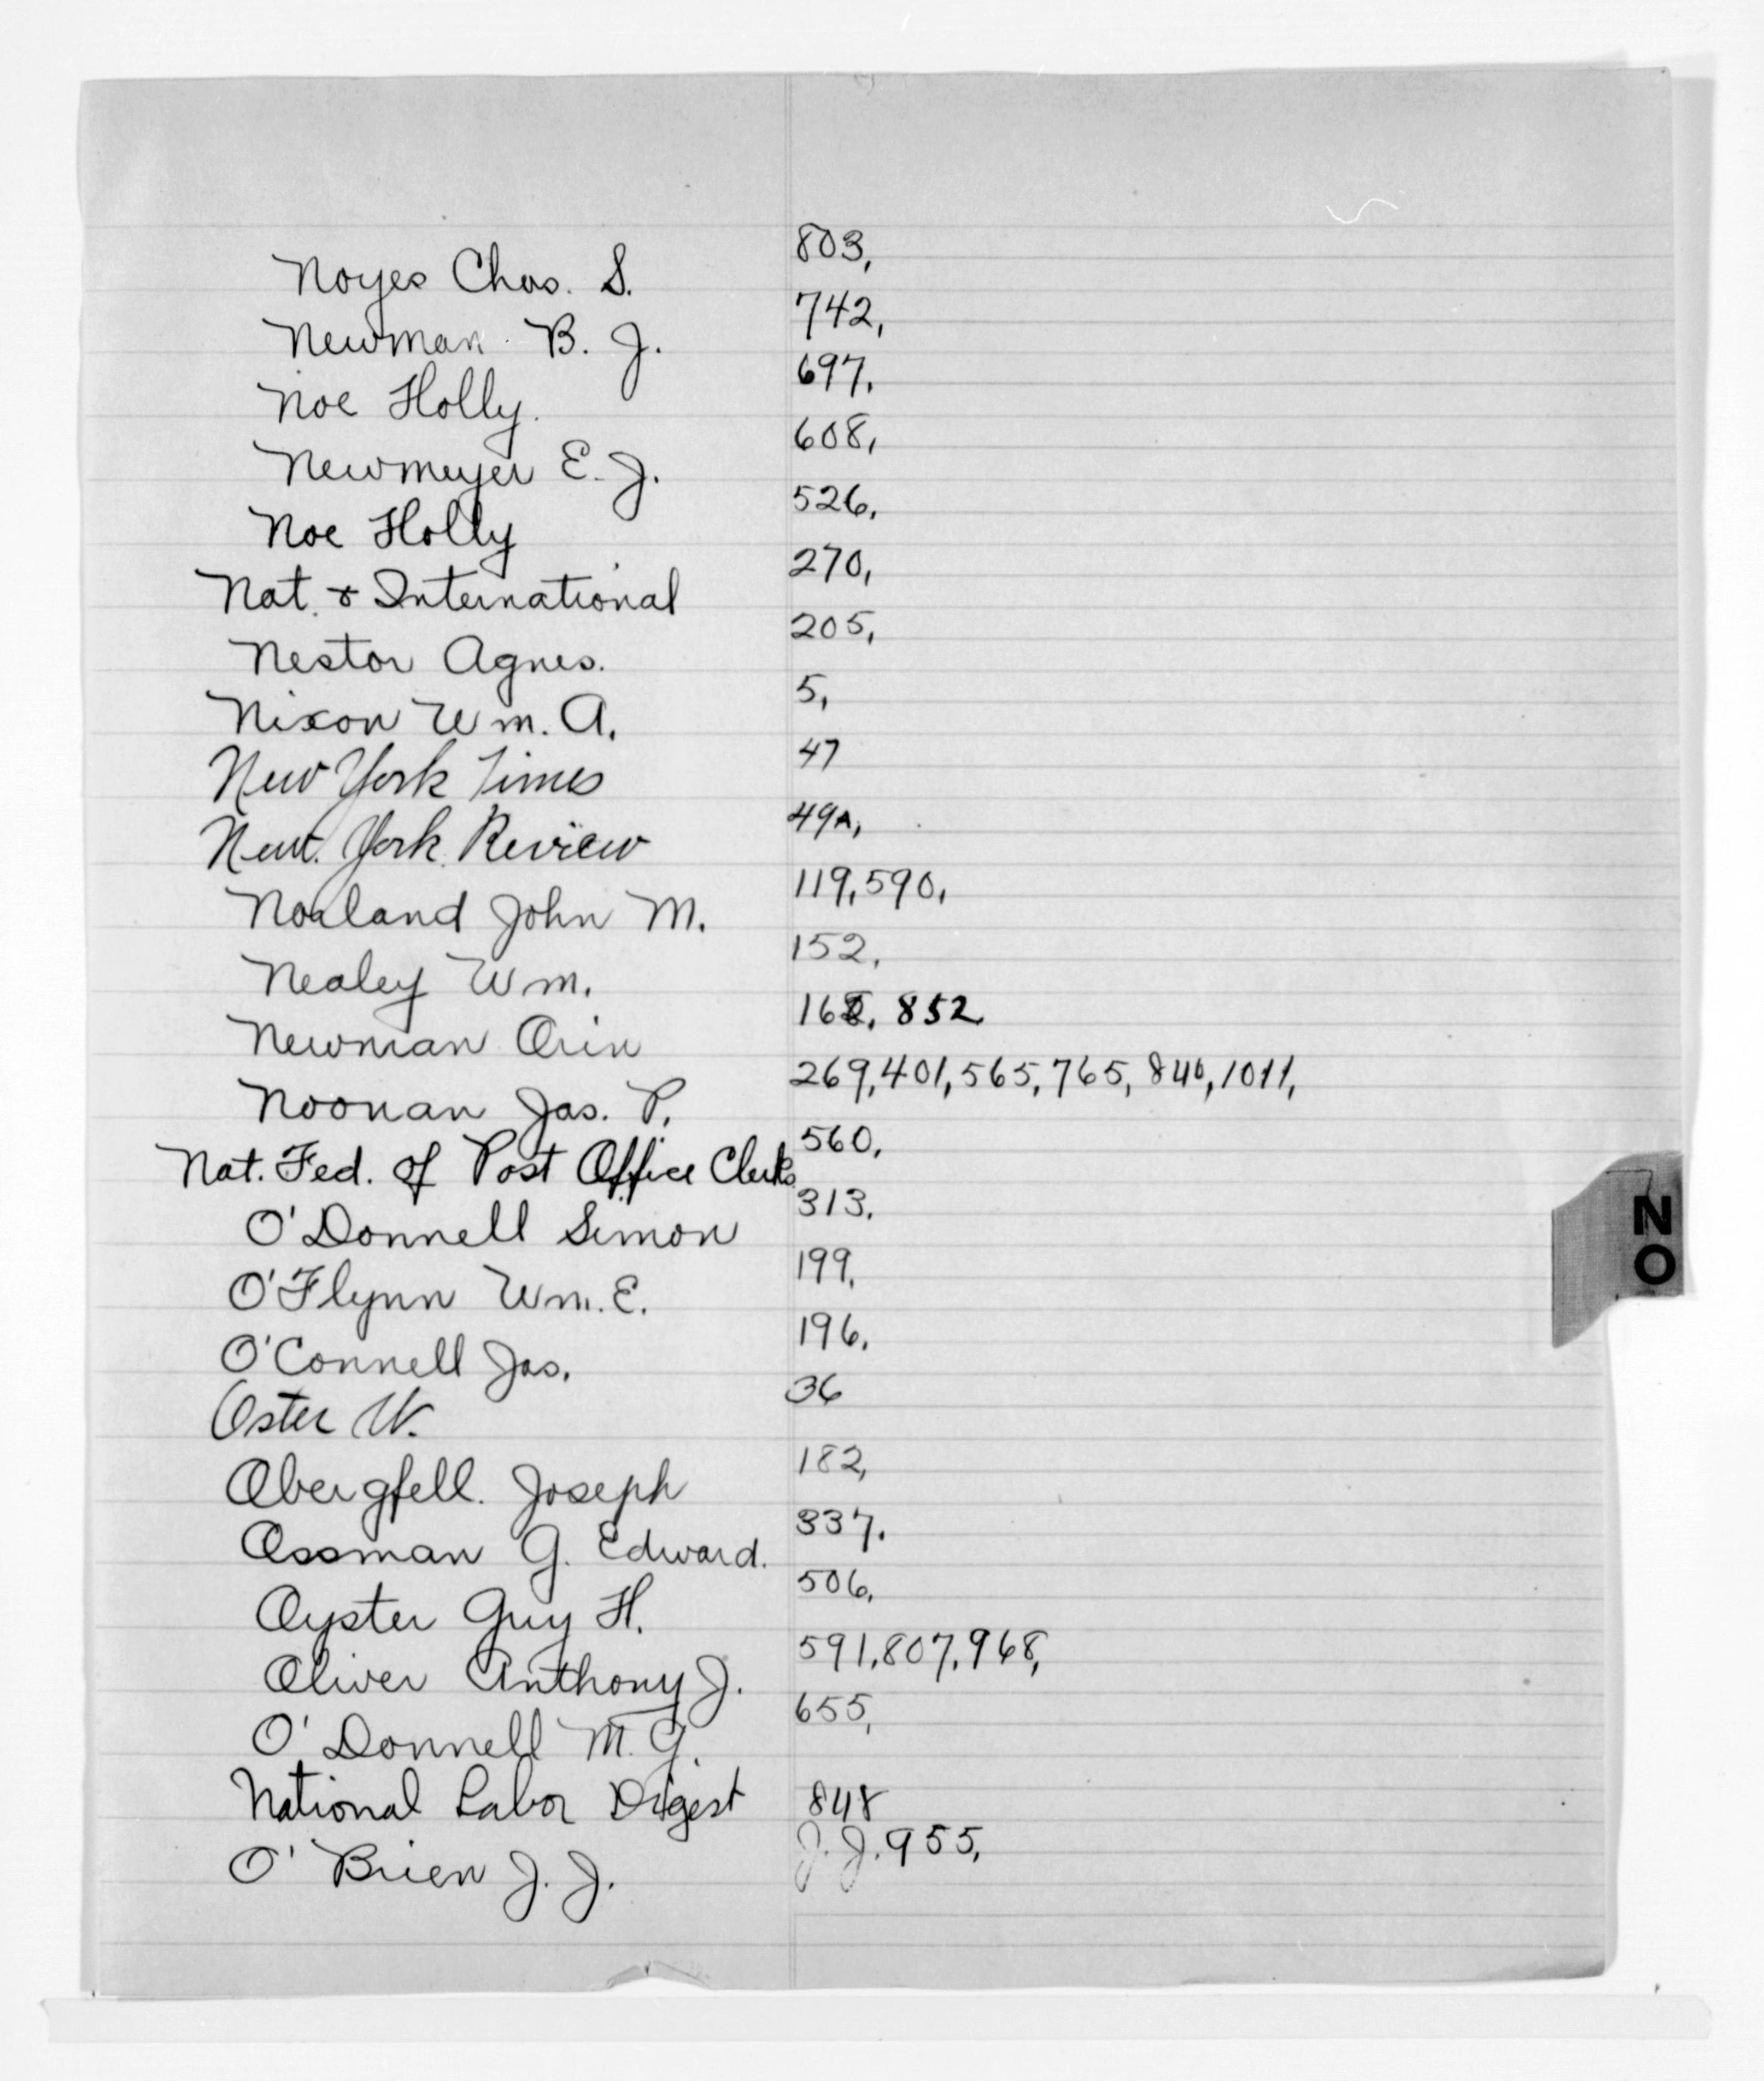 Noyes Chas. S. 803,
Newman B. J. 742,
Noe Holly. 697,
Newmeyer E. J. 608,
Noe Holly 526,
Nat. & International 270,
Nestor Agnes. 205,
Nixon Wm. A. 5,
New York Times 47
New York Review 49A,
Norland John M. 119, 590,
Nealey Wm. 152,
Newman Orin 852
Noonan Jas. P. 269, 401, 565, 765, 840, 1011,
Nat. Fed. of Post Office Clerks 560,
O'Donnell Simon 313.
O'Flynn Wm. E. 199,
O'Connell Jas. 196,
Oster W. 36
Obergfell. Joseph 182,
Ossman G. Edward. 337.
Oyster Guy H. 506,
Oliver Anthony J. 591, 807, 968,
O'Donnell M. G. 655,
National Labor Digest 848
O'Brien J. J. J. J. 955,
N
O